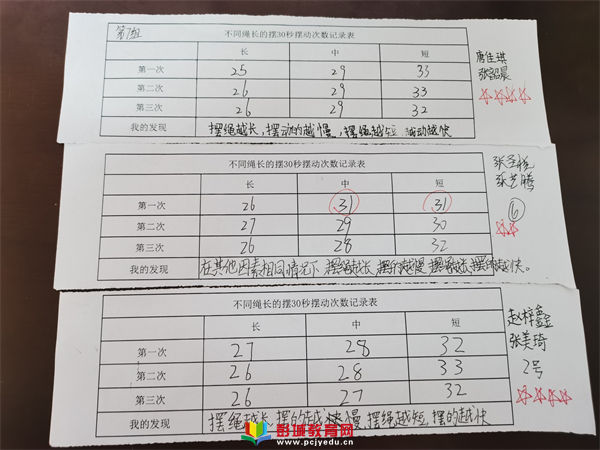 第7组
不同绳长的摆30秒摆动次数记录表
长 中 短
第一次 25 29 33
第二次 26 29 33
第三次 26 29 32
我的发现 摆绳越长,摆动的越慢,摆绳越短 摆动越快
唐佳琪
张韶晨
不同绳长的摆30秒摆动次数记录表
长 中 短
第一次 26 31 31
第二次 27 29 30
第三次 26 28 32
我的发现 在其他因素相同情况下 摆绳越长 摆的越慢 摆绳越 摆的越快。
张圣悦
张艺腾
6
不同绳长的摆30秒摆动次数记录表
长 中 短
第一次 27 28 32
第二次 26 28 33
第三次 26 27 32
我的发现 摆绳越长,摆的越慢,摆绳越短,摆的越快
赵梓鑫
张美琦
2号
彭城教育网
www.pcjyedu.cn